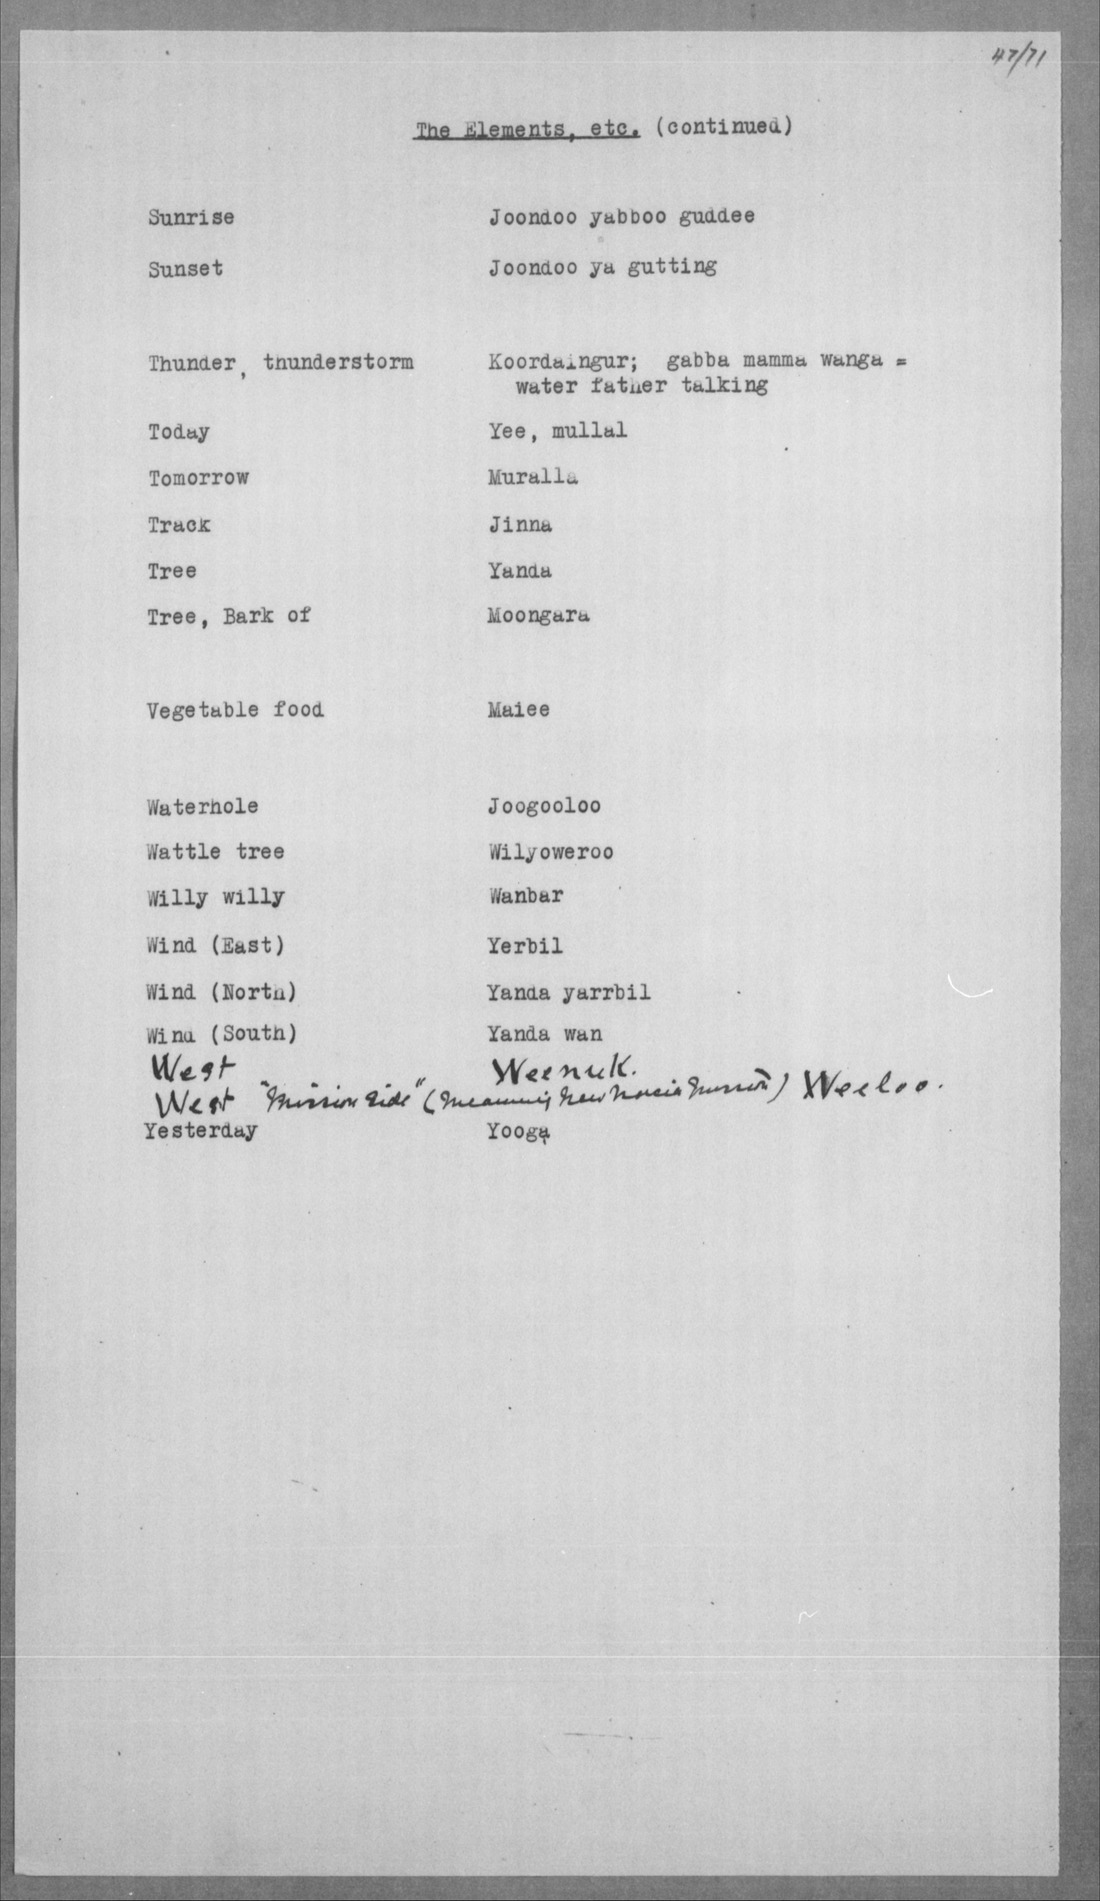 47/71
The Elements, etc. (continued)
Sunrise Joondoo yabboo guddee
Sunset Joondoo ya gutting
Thunder, thunderstorm Koordaingur; gabba mamma wanga =
water father talking
Today Yee, mullal
Tomorrow Muralla
Track Jinna
Tree Yanda
Tree, Bark of Moongara
Vegetable food Maiee
Waterhole Joogooloo
Wattle tree Wilyoweroo
Willy willy Wanbar
Wind (East) Yerbil
Wind (North) Yanda yarrbil
Wind (South) Yanda wan
West Weenuk.
West "Mission side" (meaning New Norcia Mission) Weeloo.
Yesterday Yooga